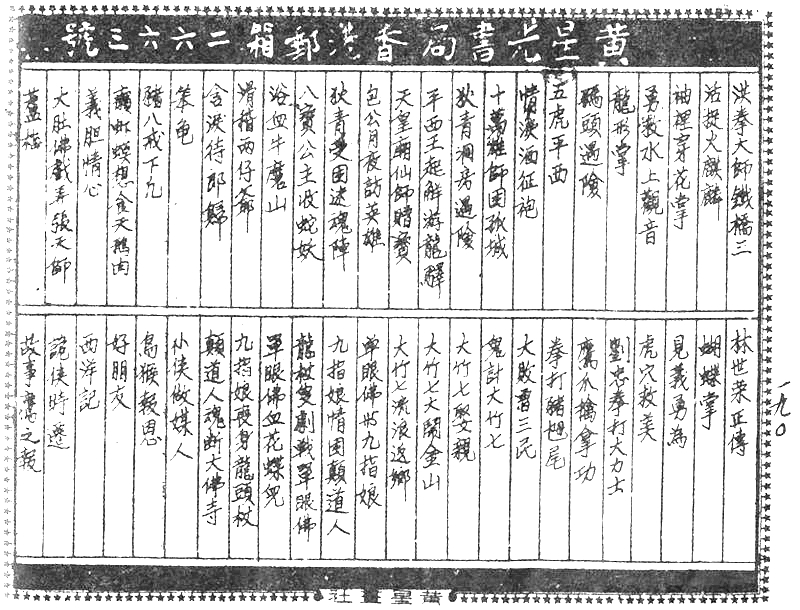 黃星光書局香港郵箱二六六三號
洪拳大師鐵橋三
活捉火麒麟
袖裡穿花掌
勇救水上觀音
龍形掌
碼頭遇險
五虎平西
情淚洒征袍
十萬雄師困孤城
狄青洞房遇險
平西王起解游龍驛
天皇廟仙師贈寶
包公月夜訪英雄
狄青雙困迷魂陣
八寶公主收蛇妖
浴血牛磨山
滑稽兩仔爺
含淚待郎歸
笨龟
豬八戒下凡
義胆情心
大肚佛戲弄張天師
林世荣正傳
蝴蝶掌
見義勇為
虎穴救美
劉忠拳打大力士
鷹爪擒拿功
拳打豬乸尾
大敗曹三民
鬼計大竹七
大竹七大鬧金山
大竹七流浪返鄉
單眼佛與九指娘
九指娘情困顛道人
龍杖雙劇戰單眼佛
單眼佛血花蝶兒
九指娘喪身龍頭杖
顛道人魂断大佛寺
小俠做媒人
好朋友
西洋記
一九〇
黃星畫社